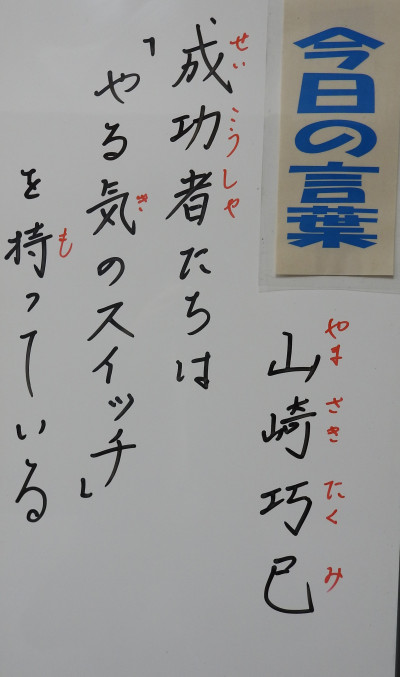 今日の言葉
山崎巧巳
やまさきたくみ
成功者たちは
せいこうしゃ
「やる気のスイッチ」
き
を持っている
も